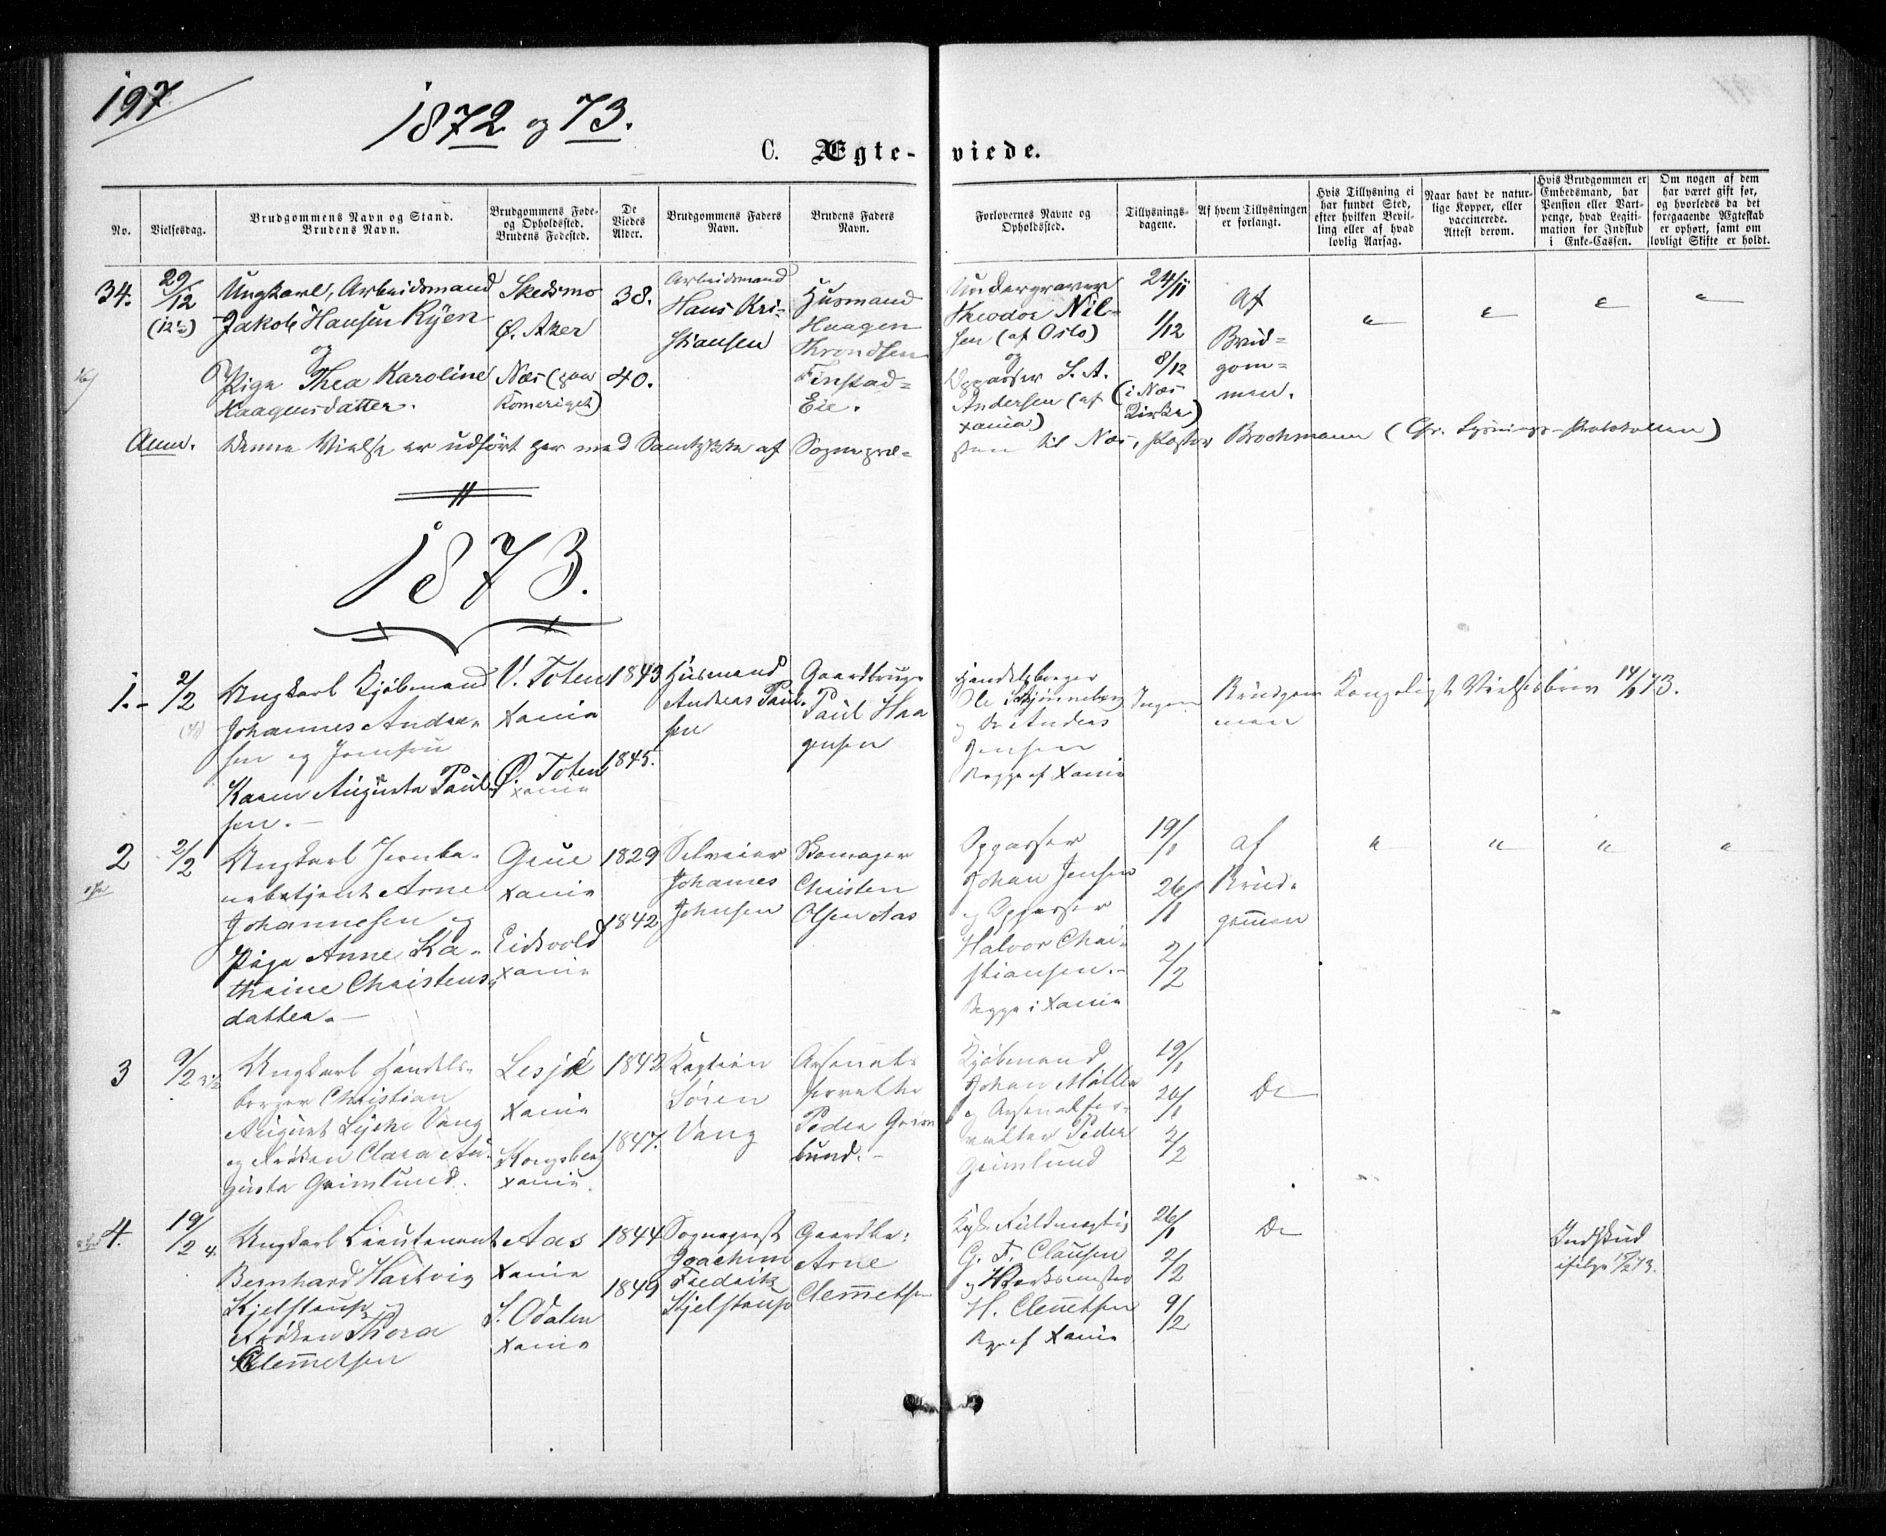 197
1872 og 73.
C. Ægteviede.
No.
Vielsesdag.
Brudgommens Navn og Stand.
Brudens Navn.
Brudgommens Føde-
og Opholdssted.
Brudens Fødested.
De
Viedes
Alder.
Brudgommens Faders
Navn.
Brudens Faders
Navn.
Forlovernes Navne og
Opholdssted.
Tillysnings-
dagene.
Af hvem Tillysningen
er forlangt.
Hvis Tillysning ei
har fundet Sted,
efter hvilken Bevil-
ling eller af hvad
lovlig Aarsag.
Naar havt de natur-
lige Kopper, eller
vaccinerede.
Attest derom.
Hvis Brudgommen er
Embedsmand, har
Pension eller Vart-
penge, hvad Legiti-
mation for Indskud
i Enke-Cassen.
Om nogen af dem
har været gift før,
og hvorledes da det
foregaaende Ægteskab
er ophørt, samt om
lovligt Skifte er holdt.
34.
29/12
Ungkarl, Arbeidsmand
Jakob Hansen Ryen
og
Pige Thea Karoline
Haagensdatter.
Skedsmo
Ø. Aker
Næs (paa
Romeriget)
38.
40.
Arbeidsmand
Hans Kri-
stiansen
Husmand
Haagen
Throndsen
Finstad-
Eie.
Undergraver
Theodor Nil-
sen (af Oslo)
og
Oppasser S. A.
Andersen (af
Xania)
24/11
1/12
8/12
(i Næs
Kirke)
Af
Brud-
gom-
men.
" " " "
Anm. Denne Vielse er udført her med Samtykke af Sognepræ-
sten til Næs, Pastor Brochmann (Cfr. Lysnings-Protokollen)
1873.
1.-
2/2
Ungkarl Kjøbmand
Johannes Andrea-
sen og Jomfru
Karen Augusta Paul-
sen.-
V. Toten
Xania
Ø. Toten
Xania
1843
1845.
Husmand
Andreas Paul-
sen
Gaardbruger
Paul Haa
gensen
Handelsborger
Ole
og Do Andreas
Jensen
Begge af Xania
Ingen
Brudgom
men
Kongeligt Vielsesbrev 14/1 73.
2
2/2
Ungkarl Jernba-
nebetjent Arne
Johannesen og
Pige Anne Ka-
thrine Christens-
datter.-
Grue
Xania
Eidsvold
Xania
1829
1842
Selveier
Johannes
Johnsen
Skomager
Christen
Olsen Aas
Oppasser
Johan Jensen
og Oppasser
Halvor Chri-
stiansen.-
Begge i Xania
19/1
26/1
2/2
af
Brud-
gommen
" " " "
3
9/2
Ungkarl Handels-
borger Christian
August Lyche Vang
og Frøken Clara Au-
gusta Grimlund.
Lesje
Xania
Kongsberg
Xania.
1842
1847.
Kaptein
Sören
Vang
Arsenal-
forvalter
Peder Grim
lund.-
Kjøbmand
Johan Möller
og Arsenalfor-
valter Peder
Grimlund
19/1
26/1
2/2
Do
4.
19/2
Ungkarl Lieutenant
Bernhard Hartvig
Kjelstrup og
Frøken Thora
Clemmetsen
Aas
Xania
S. Odalen
Xania
1844
1849
Sogneprest
Joachim
Fredrik
Kjelstrup
Gaardbr:
Arne
Clemmetsen
Fuldmægtig
G. F. Clausen
og Værksmester
H. Clemmetsen
Bege af Xania
26/1
2/2
9/2
Do
Indskud
ifølge 15/2 73.